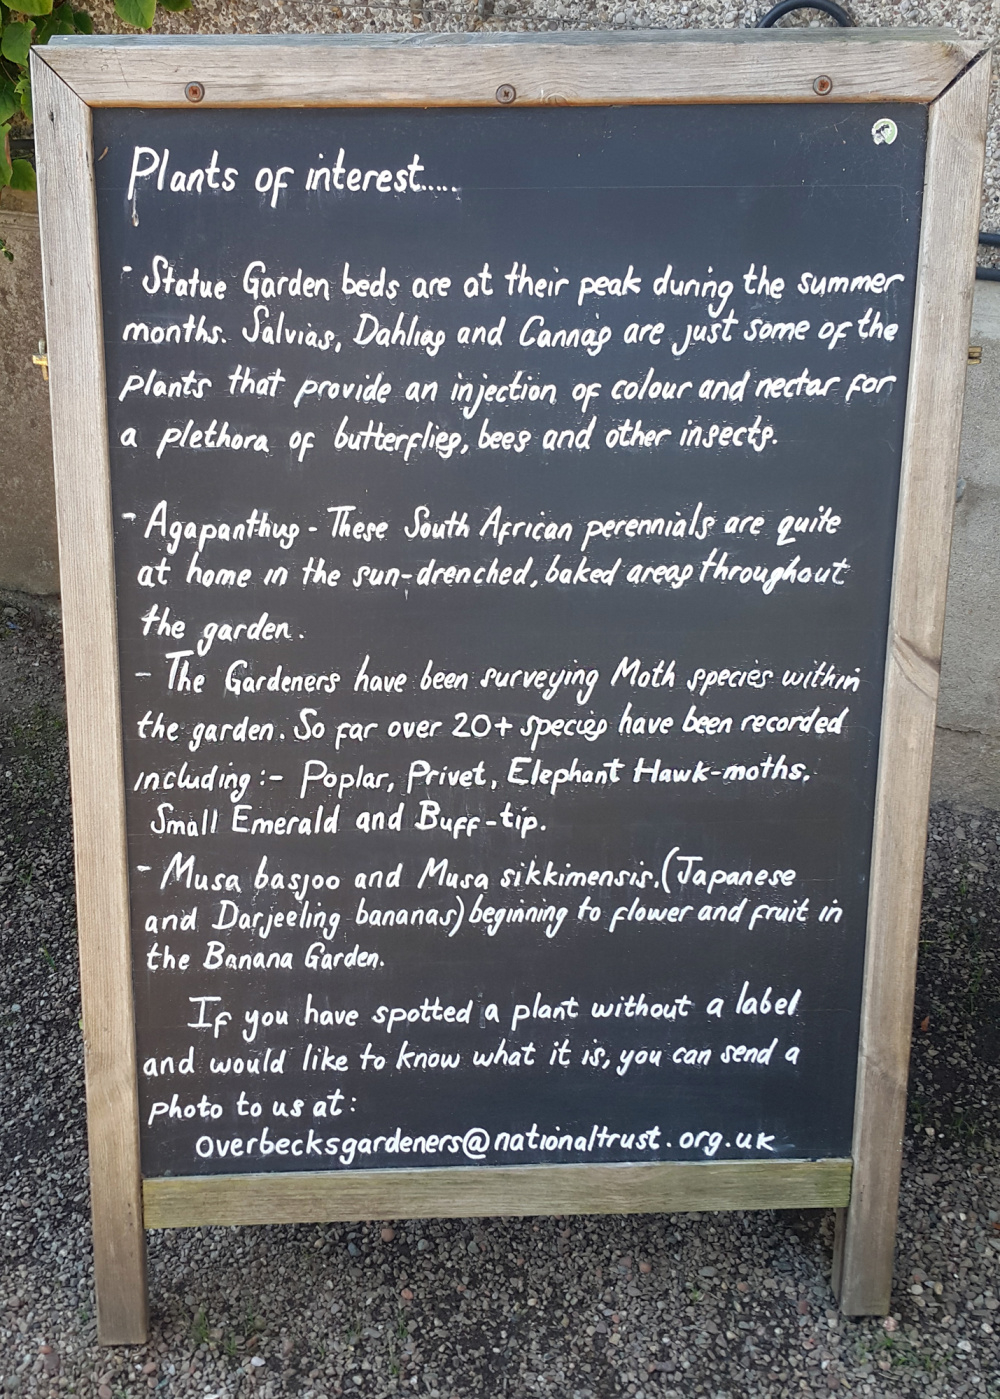 Plants of interest.....
- Statue Garden beds are at their peak during the summer
months. Salvias, Dahlias and Cannas are just some of the
plants that provide an injection of colour and nectar for
a plethora of butterflies, bees and other insects.
- Agapanthus - These South African perennials are quite
at home in the sun-drenched, baked areas throughout
the garden.
- The Gardeners have been surveying Moth species within
the garden. So far over 20+ species have been recorded
including :- Poplar, Privet, Elephant Hawk-moths,
Small Emerald and Buff-tip.
- Musa basjoo and Musa sikkimensis. (Japanese
and Darjeeling bananas) beginning to flower and fruit in
the Banana Garden.
If you have spotted a plant without a label
and would like to know what it is, you can send a
photo to us at:
overbecksgardeners@nationaltrust.org.uk